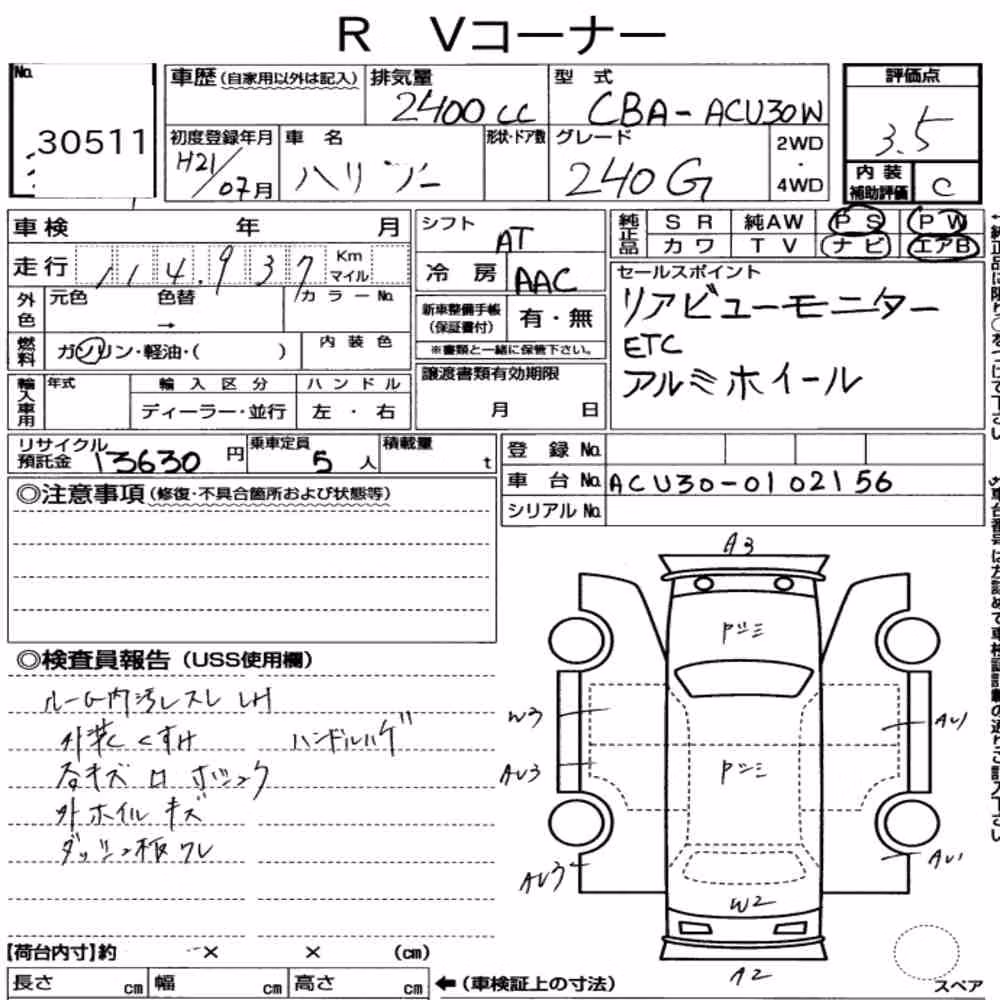 R Vコーナー
No.
30511
車歴(自家用以外は記入)
排気量
2400cc
型 式
CBA-ACU30W
評価点
3.5
初度登録年月
H21/07月
車 名
ハリアー
形状・ドア数
グレード
240G
2WD
・
4WD
内 装
補助評価
C
車検 年 月
走行 114,937 Km
マイル
外色
元色 色替
→
カラーNo.
燃料
ガソリン・軽油・( )
内 装 色
輸入車用
年式
輸 入 区 分
ハ ン ド ル
ディーラー・並行
左 ・ 右
シフト
AT
冷 房
AAC
新車整備手帳
(保証書付)
有・無
※書類と一緒に保管下さい。
譲渡書類有効期限
月 日
純正品
S R 純AW P S P W
カ ワ T V ナ ビ エアB
セールスポイント
リアビューモニター
ETC
アルミホイール
リサイクル
預託金 13630 円
乗車定員
5 人
積載量
t
登 録 No.
車 台 No. ACU30-0102156
シリアル No.
◎注意事項(修復・不具合箇所および状態等)
◎検査員報告(USS使用欄)
ルーム内汚レスレ LH
外装 くすみ
ハンドルハゲ
外ホイル キズ
A3
W3
AU3
AU3
AU1
AU1
W2
A2
【荷台内寸】約 × × (cm)
長さ cm 幅 cm 高さ cm
←(車検証上の寸法)
スペア